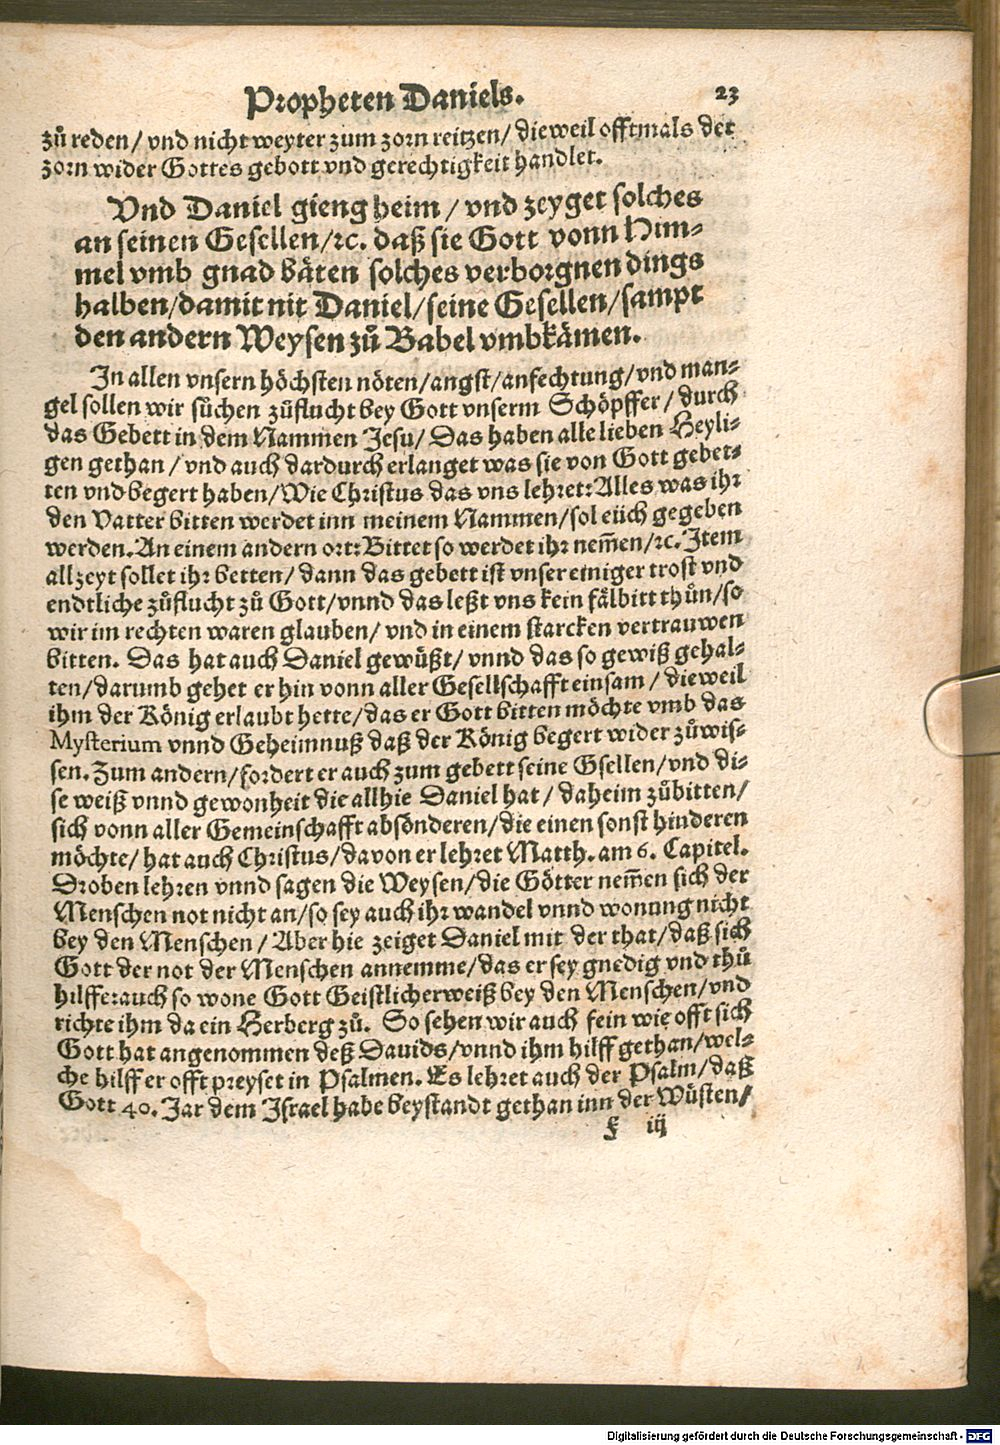 Propheten Daniels. 23
zů reden / vnd nicht weyter zum zorn reitzen / dieweil offtmals der
zorn wider Gottes gebott vnd gerechtigkeit handlet.
Vnd Daniel gieng heim / vnd zeyget solches
an seinen Gesellen / ꝛc. daß sie Gott vonn Him⸗
mel vmb gnad bäten solches verborgnen dings
halben / damit nit Daniel / seine Gesellen / sampt
den andern Weysen zů Babel vmbkämen.
In allen vnsern höchsten nöten / angst / anfechtung / vnd man⸗
gel sollen wir sůchen zůflucht bey Gott vnserm Schöpffer / durch
das Gebett in dem Nammen Jesu / Das haben alle lieben Heyli⸗
gen gethan / vnd auch dardurch erlanget was sie von Gott gebet⸗
ten vnd begert haben / Wie Christus das vns lehret: Alles was ihr
den Vatter bitten werdet inn meinem Nammen / sol eüch gegeben
werden. An einem andern ort: Bittet so werdet ihr nem̃en / ꝛc. Item
allzeyt sollet ihr betten / dann das gebett ist vnser einiger trost vnd
endtliche zůflucht zů Gott / vnnd das leßt vns kein fälbitt thůn / so
wir im rechten waren glauben / vnd in einem starcken vertrauwen
bitten. Das hat auch Daniel gewüßt / vnnd das so gewiß gehal⸗
ten / darumb gehet er hin vonn aller Gesellschafft einsam / dieweil
ihm der König erlaubt hette / das er Gott bitten möchte vmb das
Mysterium vnnd Geheimnuß daß der König begert wider zůwis⸗
sen. Zum andern / fordert er auch zum gebett seine Gsellen / vnd di⸗
se weiß vnnd gewonheit die allhie Daniel hat / daheim zůbitten /
sich vonn aller Gemeinschafft absönderen / die einen sonst hinderen
möchte / hat auch Christus / davon er lehret Matth. am 6. Capitel.
Droben lehren vnnd sagen die Weysen / die Götter nem̃en sich der
Menschen not nicht an / so sey auch ihr wandel vnnd wonung nicht
bey den Menschen / Aber hie zeiget Daniel mit der that / daß sich
Gott der not der Menschen annemme / das er sey gnedig vnd thů
hilffe: auch so wone Gott Geistlicherweiß bey den Menschen / vnd
richte ihm da ein Herberg zů. So sehen wir auch fein wie offt sich
Gott hat angenommen deß Dauids / vnnd ihm hilff gethan / wel⸗
che hilff er offt preyset in Psalmen. Es lehret auch der Psalm / daß
Gott 40. Jar dem Israel habe beystandt gethan inn der Wüsten /
f iij
Digitalisierung gefördert durch die Deutsche Forschungsgemeinschaft - DFG